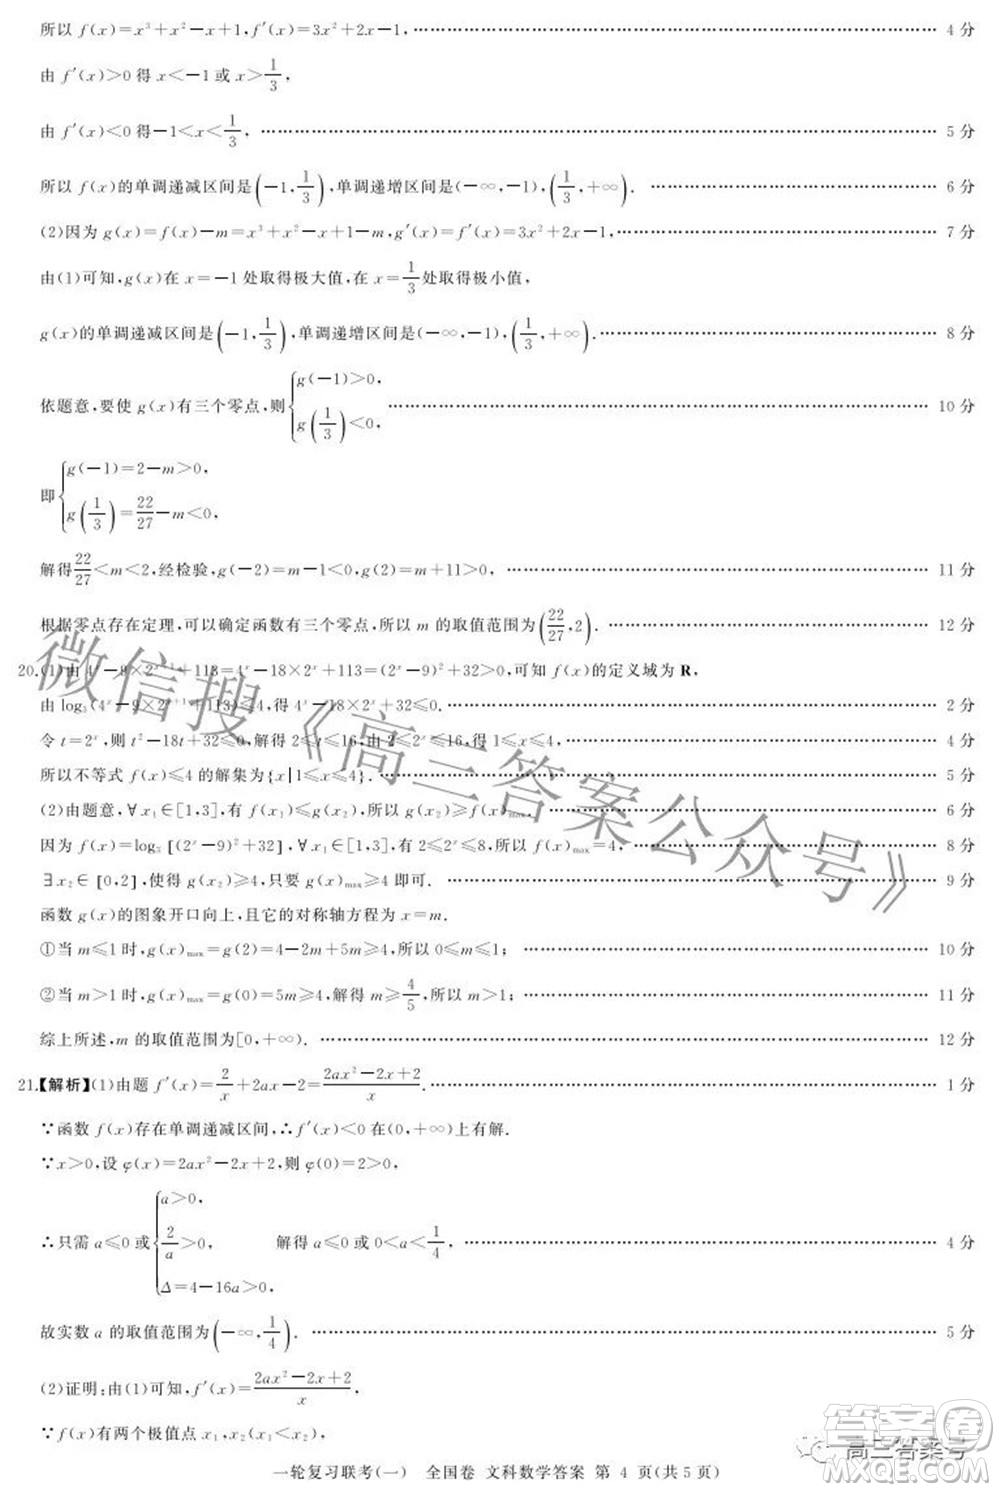 所以 f(x)=x³+x²−x+1,f′(x)=3x²+2x−1,……………… 4 分
由 f′(x)>0 得 x<−1 或 x>1/3,
由 f′(x)<0 得−1<x<1/3, ……………… 5 分
所以 f(x)的单调递减区间是(−1,1/3),单调递增区间是(−∞,−1),(1/3,+∞). ……………… 6 分
(2)因为 g(x)=f(x)−m=x³+x²−x+1−m,g′(x)=f′(x)=3x²+2x−1,……………… 7 分
由(1)可知,g(x)在 x=−1 处取得极大值,在 x=1/3 处取得极小值,
g(x)的单调递减区间是(−1,1/3),单调递增区间是(−∞,−1),(1/3,+∞).……………… 8 分
依题意,要使 g(x)有三个零点,则{g(−1)>0, g(1/3)<0, ……………… 10 分
即{g(−1)=2−m>0, g(1/3)=22/27−m<0,
解得22/27<m<2,经检验,g(−2)=m−1<0,g(2)=m+11>0, ……………… 11 分
根据零点存在定理,可以确定函数有三个零点,所以 m 的取值范围为(22/27,2). ……………… 12 分
20.(1)由 4ˣ−9×2ˣ⁺¹+113=4ˣ−18×2ˣ+113=(2ˣ−9)²+32>0,可知 f(x)的定义域为 R,
由 log₃(4ˣ−9×2ˣ⁺¹+113)≤4,得 4ˣ−18×2ˣ+32≤0. ……………… 2 分
令 t=2ˣ,则 t²−18t+32≤0,解得 2≤t≤16,由 2≤2ˣ≤16,得 1≤x≤4, ……………… 4 分
所以不等式 f(x)≤4 的解集为{x|1≤x≤4}. ……………… 5 分
(2)由题意,∀x₁∈[1,3],有 f(x₁)≤g(x₂),所以 g(x₂)≥f(x)max, ……………… 6 分
因为 f(x)=log₃[(2ˣ−9)²+32],∀x₁∈[1,3],有 2≤2ˣ≤8,所以 f(x)max=4, ……………… 8 分
∃x₂∈[0,2],使得 g(x₂)≥4,只要 g(x)max≥4 即可. ……………… 9 分
函数 g(x)的图象开口向上,且它的对称轴方程为 x=m.
①当 m≤1 时,g(x)max=g(2)=4−2m+5m≥4,所以 0≤m≤1; ……………… 10 分
②当 m>1 时,g(x)max=g(0)=5m≥4,解得 m≥4/5,所以 m>1; ……………… 11 分
综上所述,m 的取值范围为[0,+∞). ……………… 12 分
21.【解析】(1)由题 f′(x)=2/x+2ax−2=(2ax²−2x+2)/x.……………… 1 分
∵函数 f(x)存在单调递减区间,∴f′(x)<0 在(0,+∞)上有解.
∵x>0,设 φ(x)=2ax²−2x+2,则 φ(0)=2>0,
∴只需 a≤0 或{a>0, 2/a>0, Δ=4−16a>0, 解得 a≤0 或 0<a<1/4, ……………… 4 分
故实数 a 的取值范围为(−∞,1/4). ……………… 5 分
(2)证明:由(1)可知,f′(x)=(2ax²−2x+2)/x,
∵f(x)有两个极值点 x₁,x₂(x₁<x₂),
一轮复习联考(一) 全国卷 文科数学答案 第 4 页(共 5 页)
微信搜《高三答案公众号》
高三答案号
答案圈
MXQE.COM